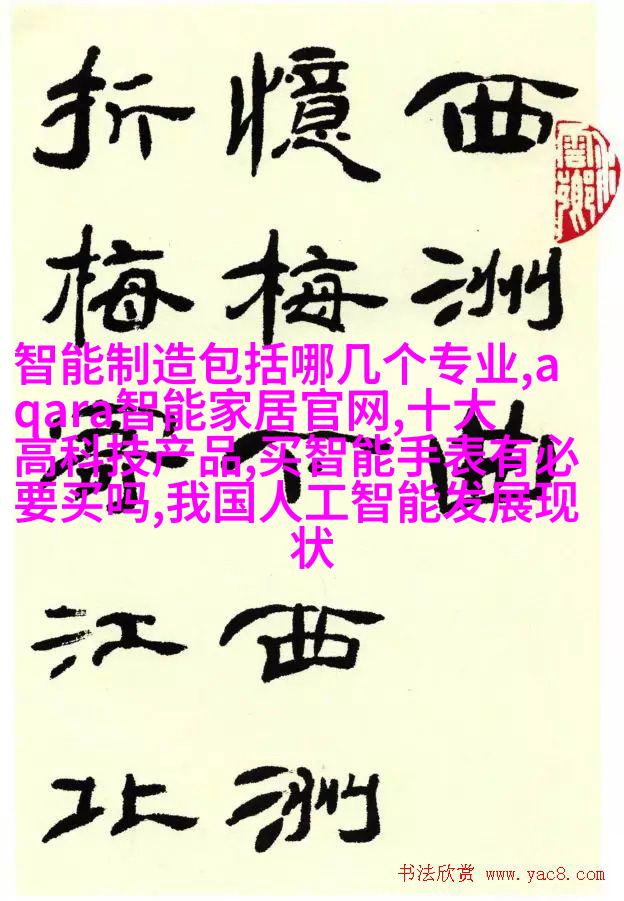 西洲曲
憶梅下西洲
折梅寄江北
智能制造包括哪几个专业,a
qara智能家居官网,十大
高科技产品,买智能手表有必
要买吗,我国人工智能发展现
状
书法欣赏 www.yac8.com